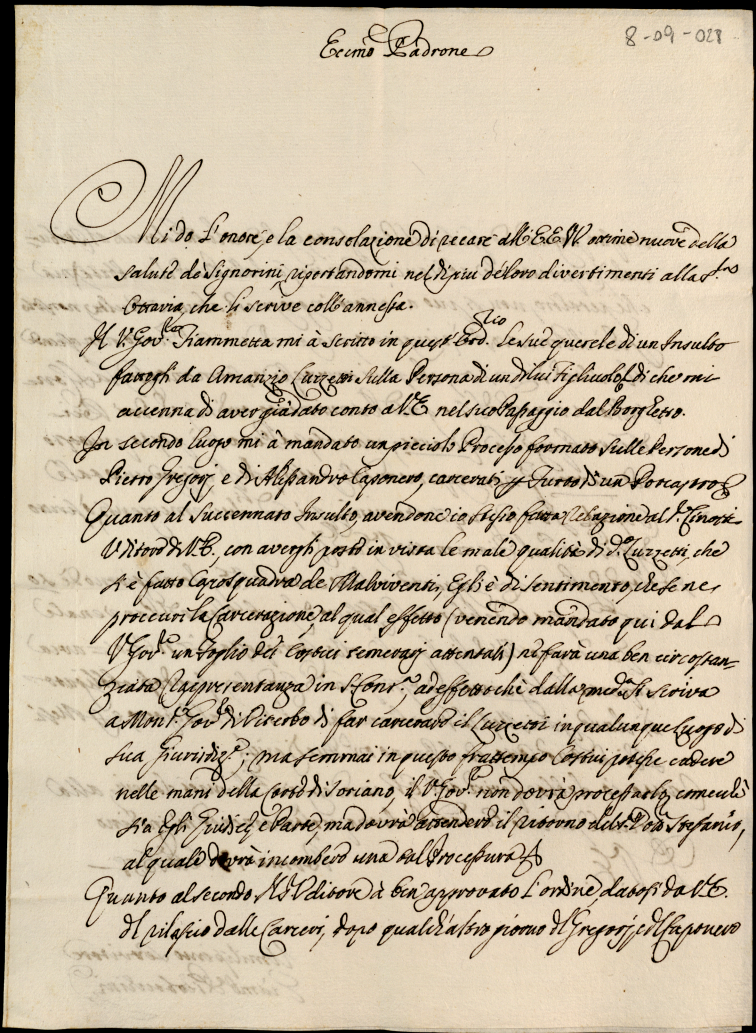 8-09-028
Eccmo Padrone
Mi do l'onore, e la consolazione di recare all'EE VV. ottime nuove della
salute de Signorini, riportandomi nel di più de loro divertimenti alla
Ottavia, che li scrive coll'annessa.
Il V. Govre. Fiammetta mi à scritto in quest'Ordio. le sue querele di un Insulto
fattogli da Amanzio Luzzetti sulla Persona di un di lui Figliuolo, di che mi
accenna di aver già dato conto a V.E. nel suo Passaggio dal Borghetto.
In secondo luogo mi à mandato un picciolo Processo formato sulle Persone di
Pietro Gregorj, e di Alessandro Caponero, carcerati p Furto di un Porcastro
Quanto al succennato Insulto, avendone io stesso fatta Relazione al Sr.
Uditore di V.E., con avergli posto in vista le male qualità di do. Luzzetti, che
si è fatto Caposquadra de Malviventi, Egli è di sentimento, che se ne
proccuri la Carcerazione, al qual effetto (venendo mandato qui dal
V. Govre. un Foglio dei Costui temerarj attentati) ne farà una ben circostan-
ziata Rappresentanza in S. Conta., ad effetto che dalla medma. si scriva
a Monsr. Govre. di Viterbo di far carcerare il Luzzetti in qualunque Luogo di
sua Giurisdizne.; ma semmai in questo frattempo Costui potesse cadere
nelle mani della Corte di Soriano, il V. Govre. non dovrà processarlo, comecchè
sia Egli Giudice, e Parte, ma dovrà attendere il ritorno del Sr. Dote Stefanio,
al quale dovrà incombere una tal Processura
Quanto al secondo, il Sr. Uditore à ben approvato l'ordine datosi da V.E.
del rilascio dalle Carceri, dopo qualch'altro giorno del Gregorj, e del Caponero